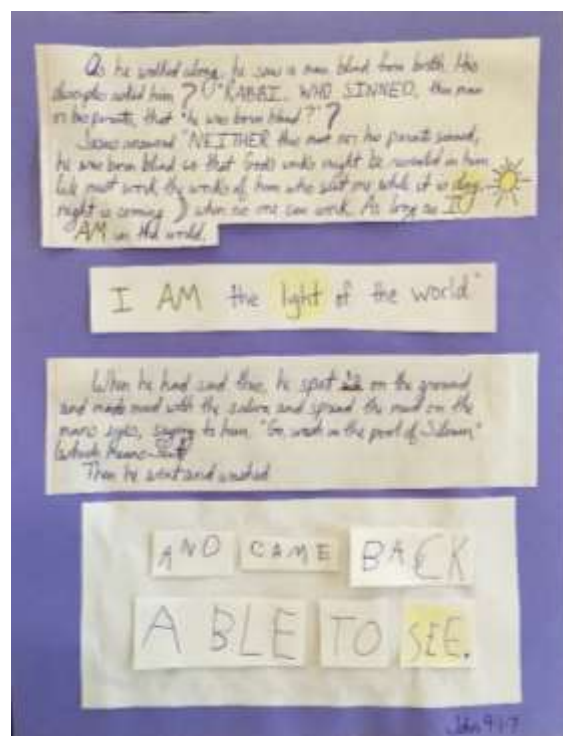 As he walked along, he saw a man blind from birth. His
disciples asked him ? "RABBI, WHO SINNED, this man
or his parents, that he was born blind?" ?
Jesus answered "NEITHER this man nor his parents sinned,
he was born blind so that God's works might be revealed in him
We must work the works of him who sent me while it is day,
night is coming when no one can work. As long as I
AM in the world,
I AM the light of the world"
When he had said this, he spat on the ground
and made mud with the saliva and spread the mud on the
mans eyes, saying to him, "Go, wash in the pool of Siloam"
(which means Sent)
Then he went and washed
AND CAME BACK
ABLE TO SEE.
John 9:1-7